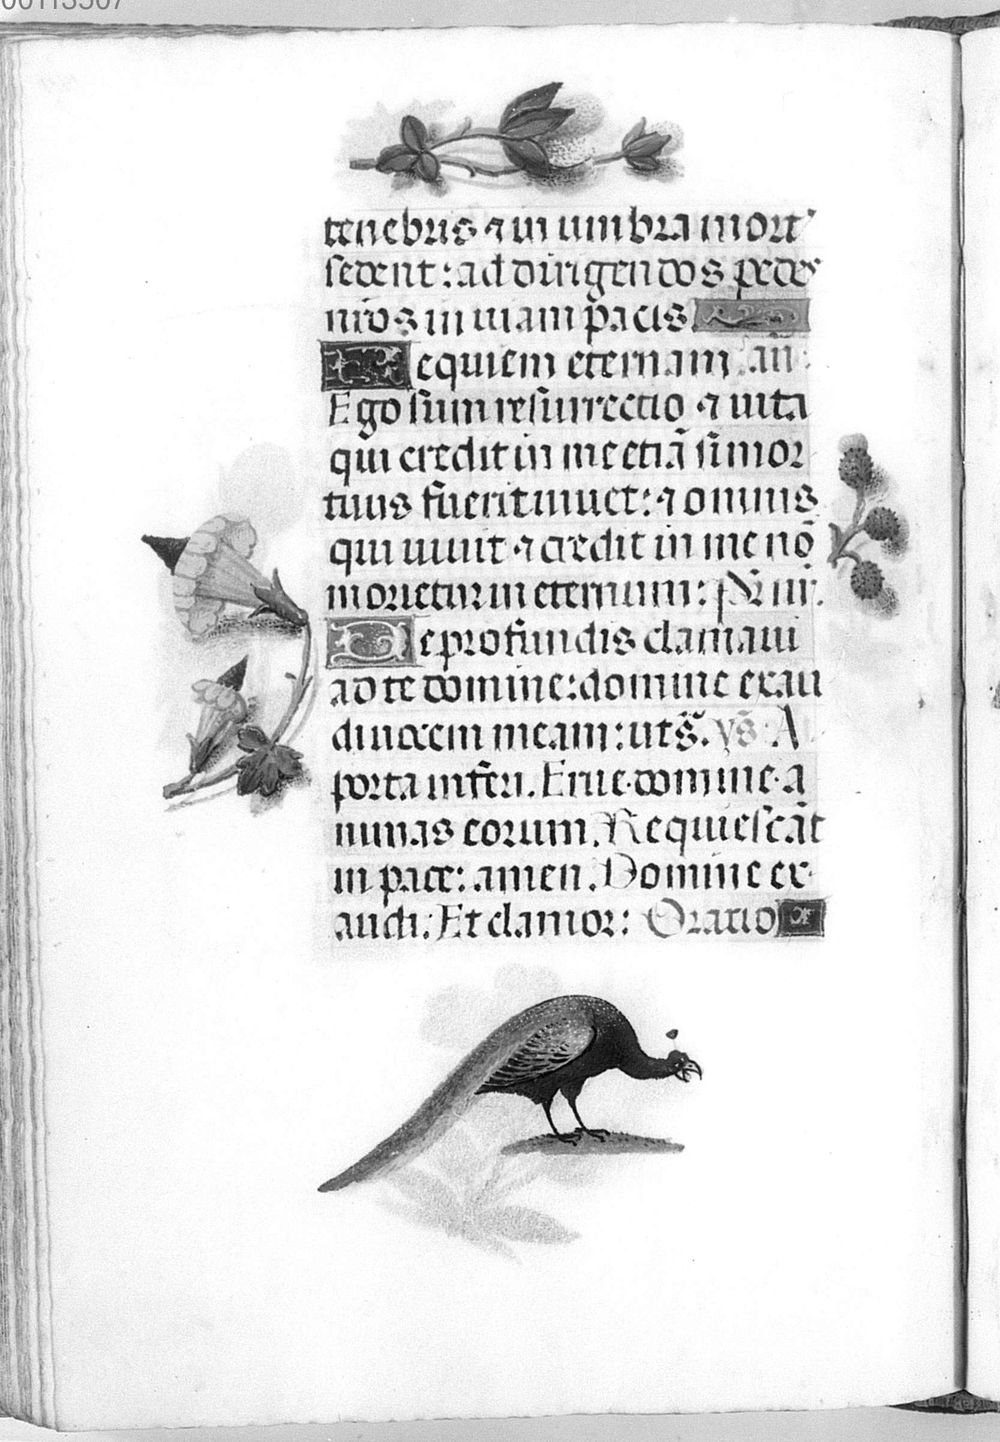 00113507
tenebris ⁊ in umbra mort᾽
sedent: ad dirigendos pedes
nros in uiam pacis
Requiem eternam. añ.
Ego sum resurrectio ⁊ uita
qui credit in me etiā si mor
tuus fuerit uiuet: ⁊ omnis
qui uiuit ⁊ credit in me nō
morietur in eternum:
De profundis clamaui
ad te domine: domine exau
di uocem meam: ut s̄. vs̄. A
porta inferi. Erue domine a
nimas eorum. Requiescāt
in pace: amen. Domine ex
audi. Et clamor: Oratio